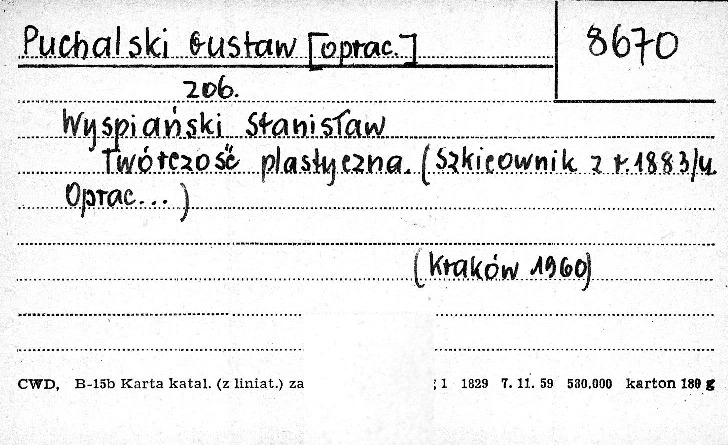 Puchalski Gustaw [oprac.]
8670
206.
Wyspiański Stanisław
Twórczość plastyczna. (Szkicownik z r. 1883/4.
Oprac...)
(Kraków 1960)
CWD, B-15b Karta katal. (z liniat.) za ; 1 1829 7. 11. 59 530.000 karton 180 g